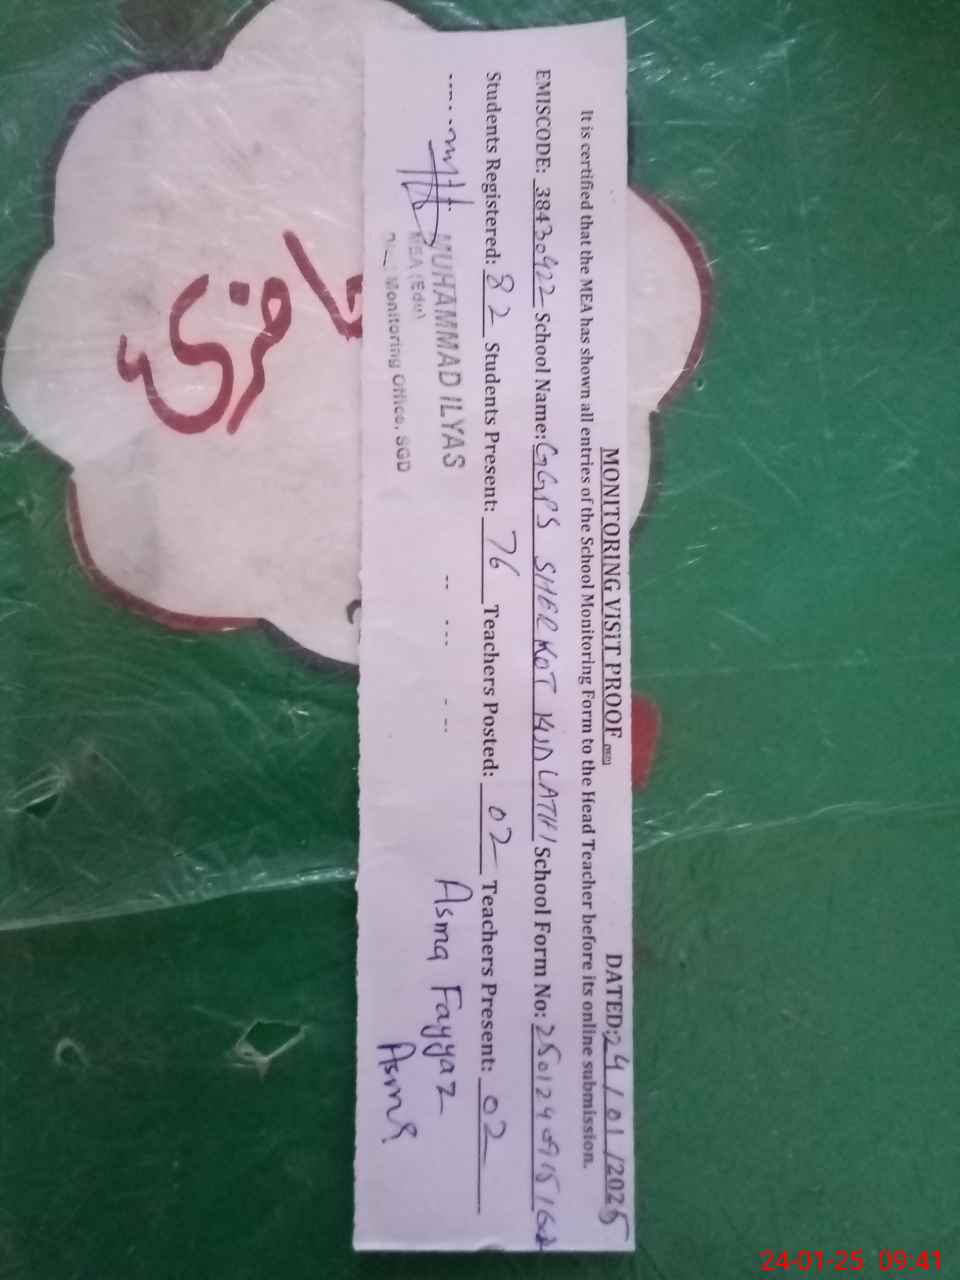 MONITORING VISIT PROOF DATED: 24/01/2025
It is certified that the MEA has shown all entries of the School Monitoring Form to the Head Teacher before its online submission.
EMISCODE: 38430422 School Name: GGPS SHER KOT KUD LATHI School Form No:
Students Registered: 82 Students Present: 76 Teachers Posted: 02 Teachers Present: 02
MUHAMMAD ILYAS
MEA (Edu)
Monitoring Office, SGD
Asma Fayyaz
Asma
24-01-25 09:41